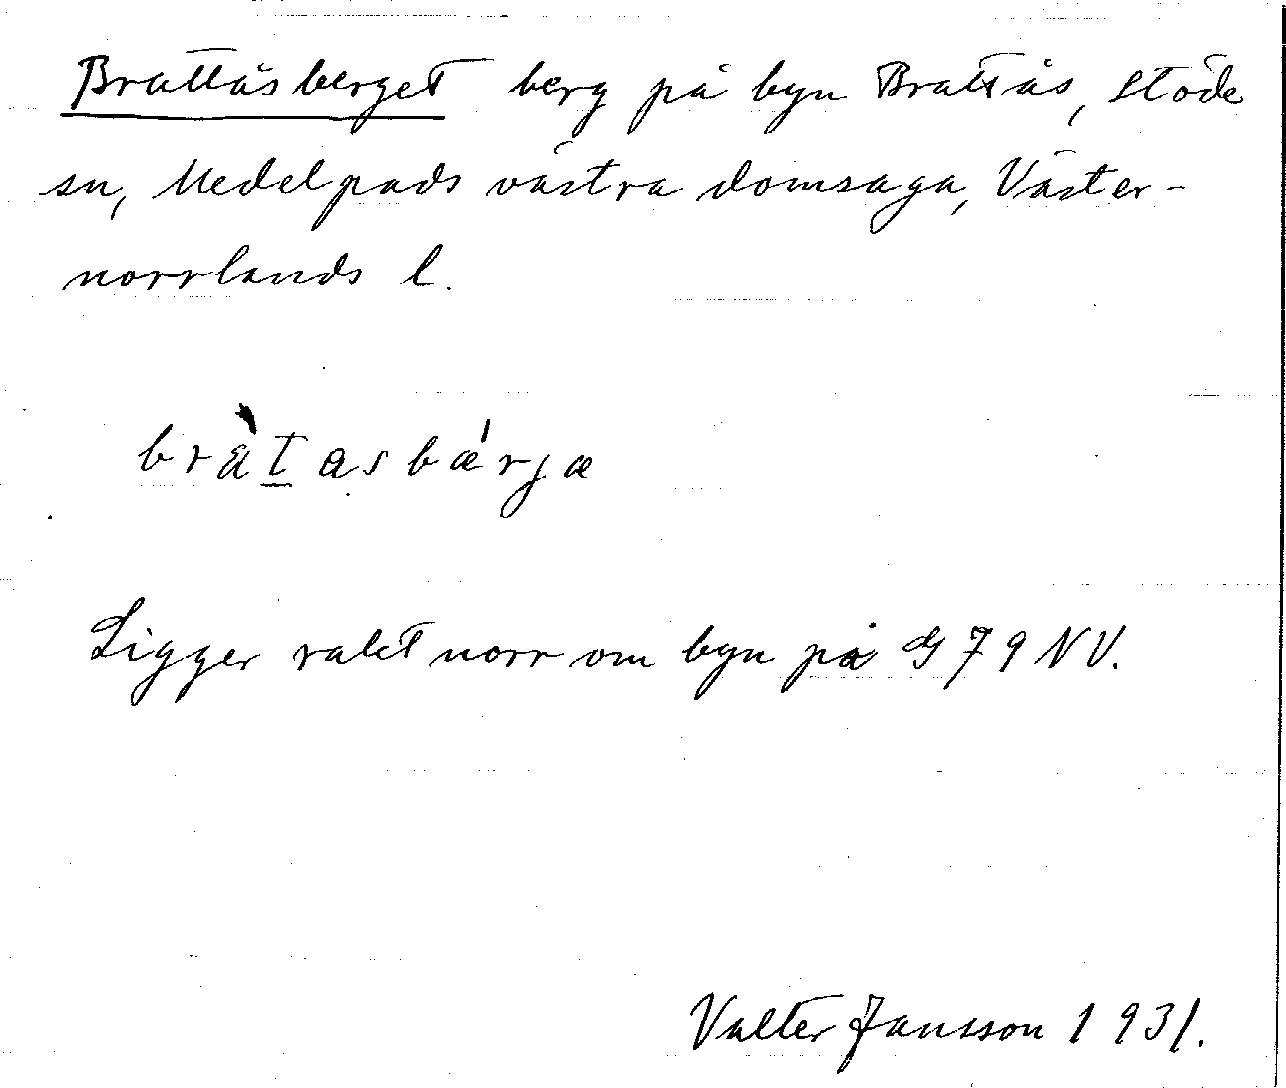 Brattåsberget berg på byn Brattås, Stöde
sn, Medelpads västra domsaga, Väster-
norrlands l.
bràt̲asbǽrjæ
Ligger rakt norr om byn på G 79 NV.
Valter Jansson 1931.